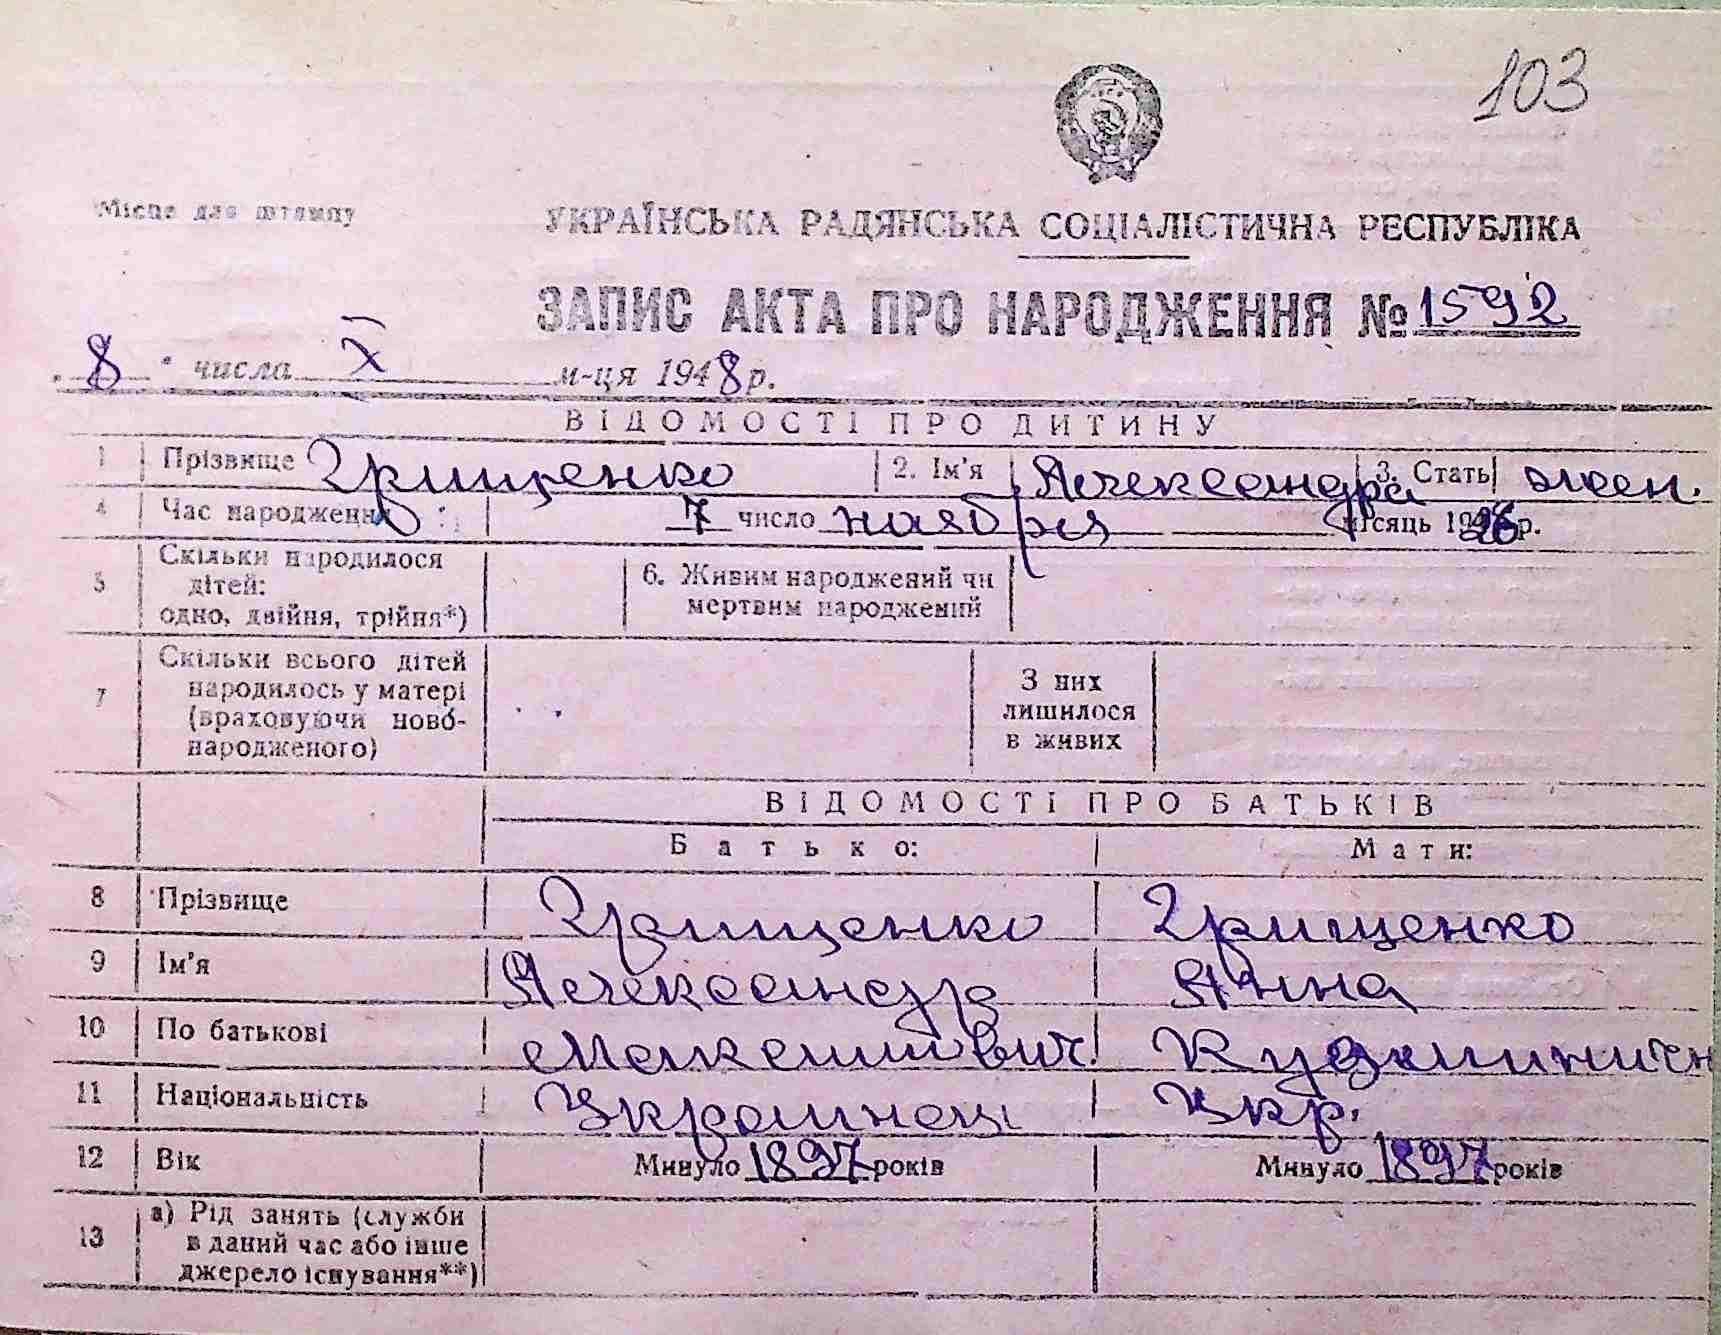 103
Місце для штампу
УКРАЇНСЬКА РАДЯНСЬКА СОЦІАЛІСТИЧНА РЕСПУБЛІКА
ЗАПИС АКТА ПРО НАРОДЖЕННЯ № 1592
8 числа X м-ця 1948 р.
ВІДОМОСТІ ПРО ДИТИНУ
1 Прізвище Грищенко 2. Ім'я Александра 3. Стать жен.
4 Час народження 7 число ноября місяць 1926 р.
5 Скільки народилося дітей: одно, двійня, трійня*) 6. Живим народжений чи мертвим народжений
7 Скільки всього дітей народилось у матері (враховуючи ново-народженого) З них лишилося в живих
ВІДОМОСТІ ПРО БАТЬКІВ
Батько: Мати:
8 Прізвище Грищенко Грищенко
9 Ім'я Александр Анна
10 По батькові
11 Національність Украинец Укр.
12 Вік Минуло 1897 років Минуло 1897 років
13 а) Рід занять (служби в даний час або інше джерело існування**)